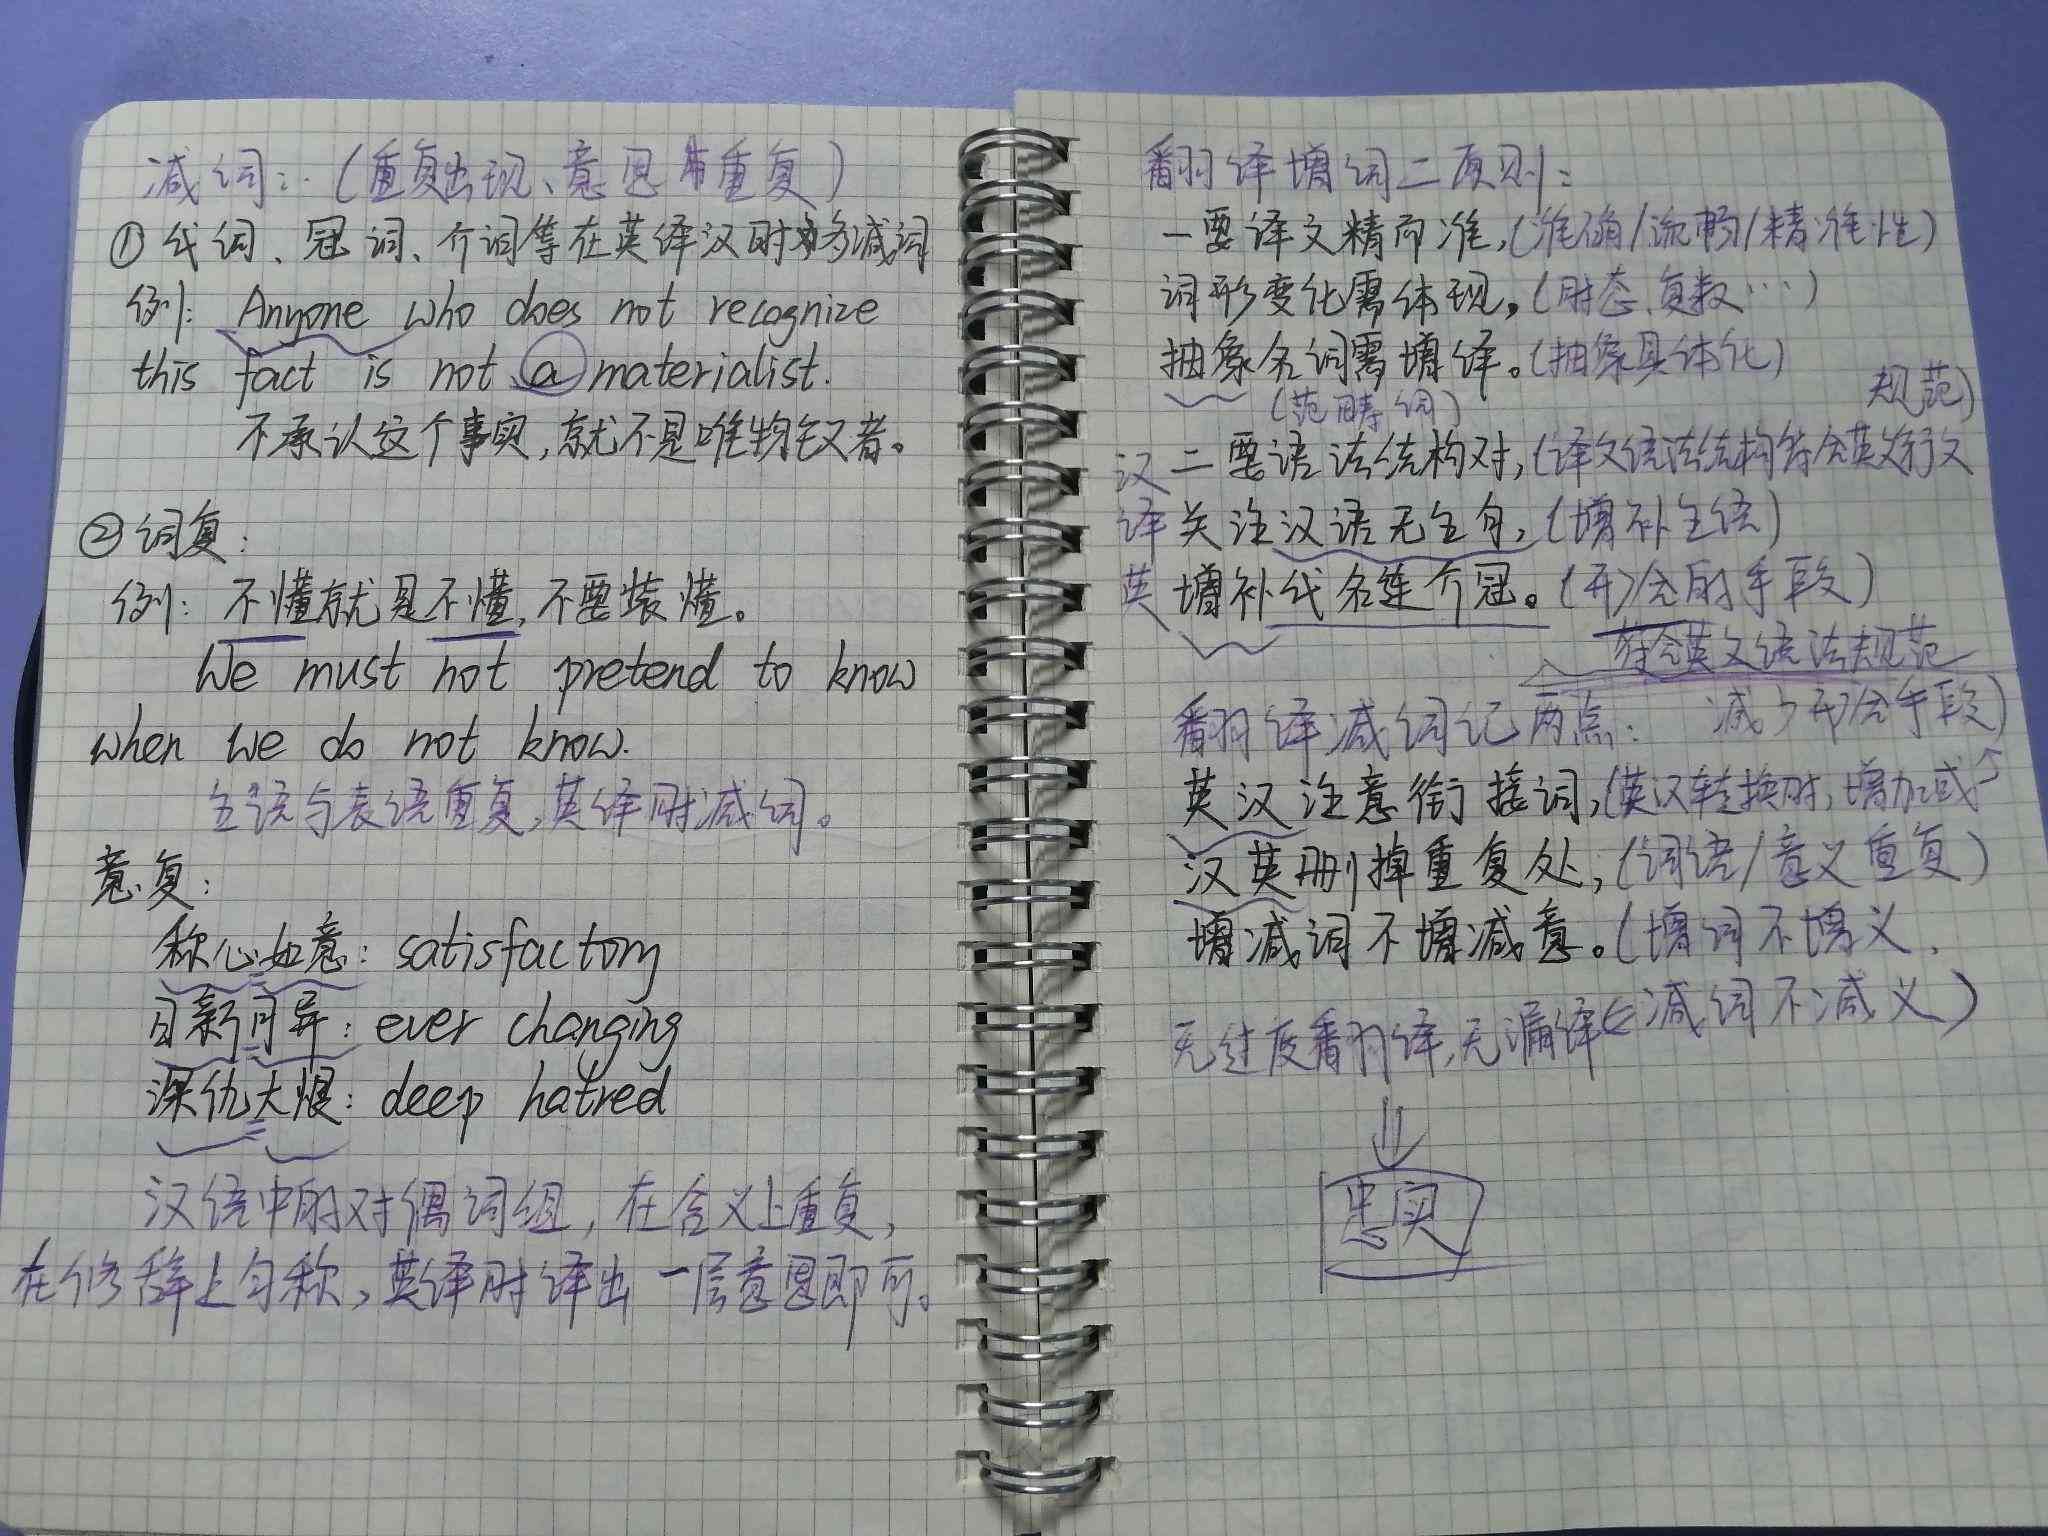 减词：（重复出现、意思重复）
①代词、冠词、介词等在英译汉时多减词
例：Anyone who does not recognize
this fact is not a materialist.
不承认这个事实，就不是唯物主义者。
②词复：
例：不懂就是不懂，不要装懂。
We must not pretend to know
when we do not know.
主语与表语重复，英译时减词。
意复：
称心如意：satisfactory
日新月异：ever changing
深仇大恨：deep hatred
汉语中的对偶词组，在含义上重复，
在修辞上匀称，英译时译出一层意思即可。
翻译增词二原则：
一要译文精而准，（准确/流畅/精准性）
词形变化需体现，（时态、复数…）
抽象名词需增译。（抽象具体化）
（范畴词）
规范）
汉 二要语法结构对，（译文语法结构符合英文行文
译 关注汉语无主句，（增补主语）
英 增补代名连介冠。（形合的手段）
符合英文语法规范
翻译减词记两点： 减少形合手段）
英汉注意衔接词，（英汉转换时，增加或
汉英删掉重复处，（词语/意义重复）
增减词不增减意。（增词不增义，
无过度翻译，无漏译⇐减词不减义）
忠实